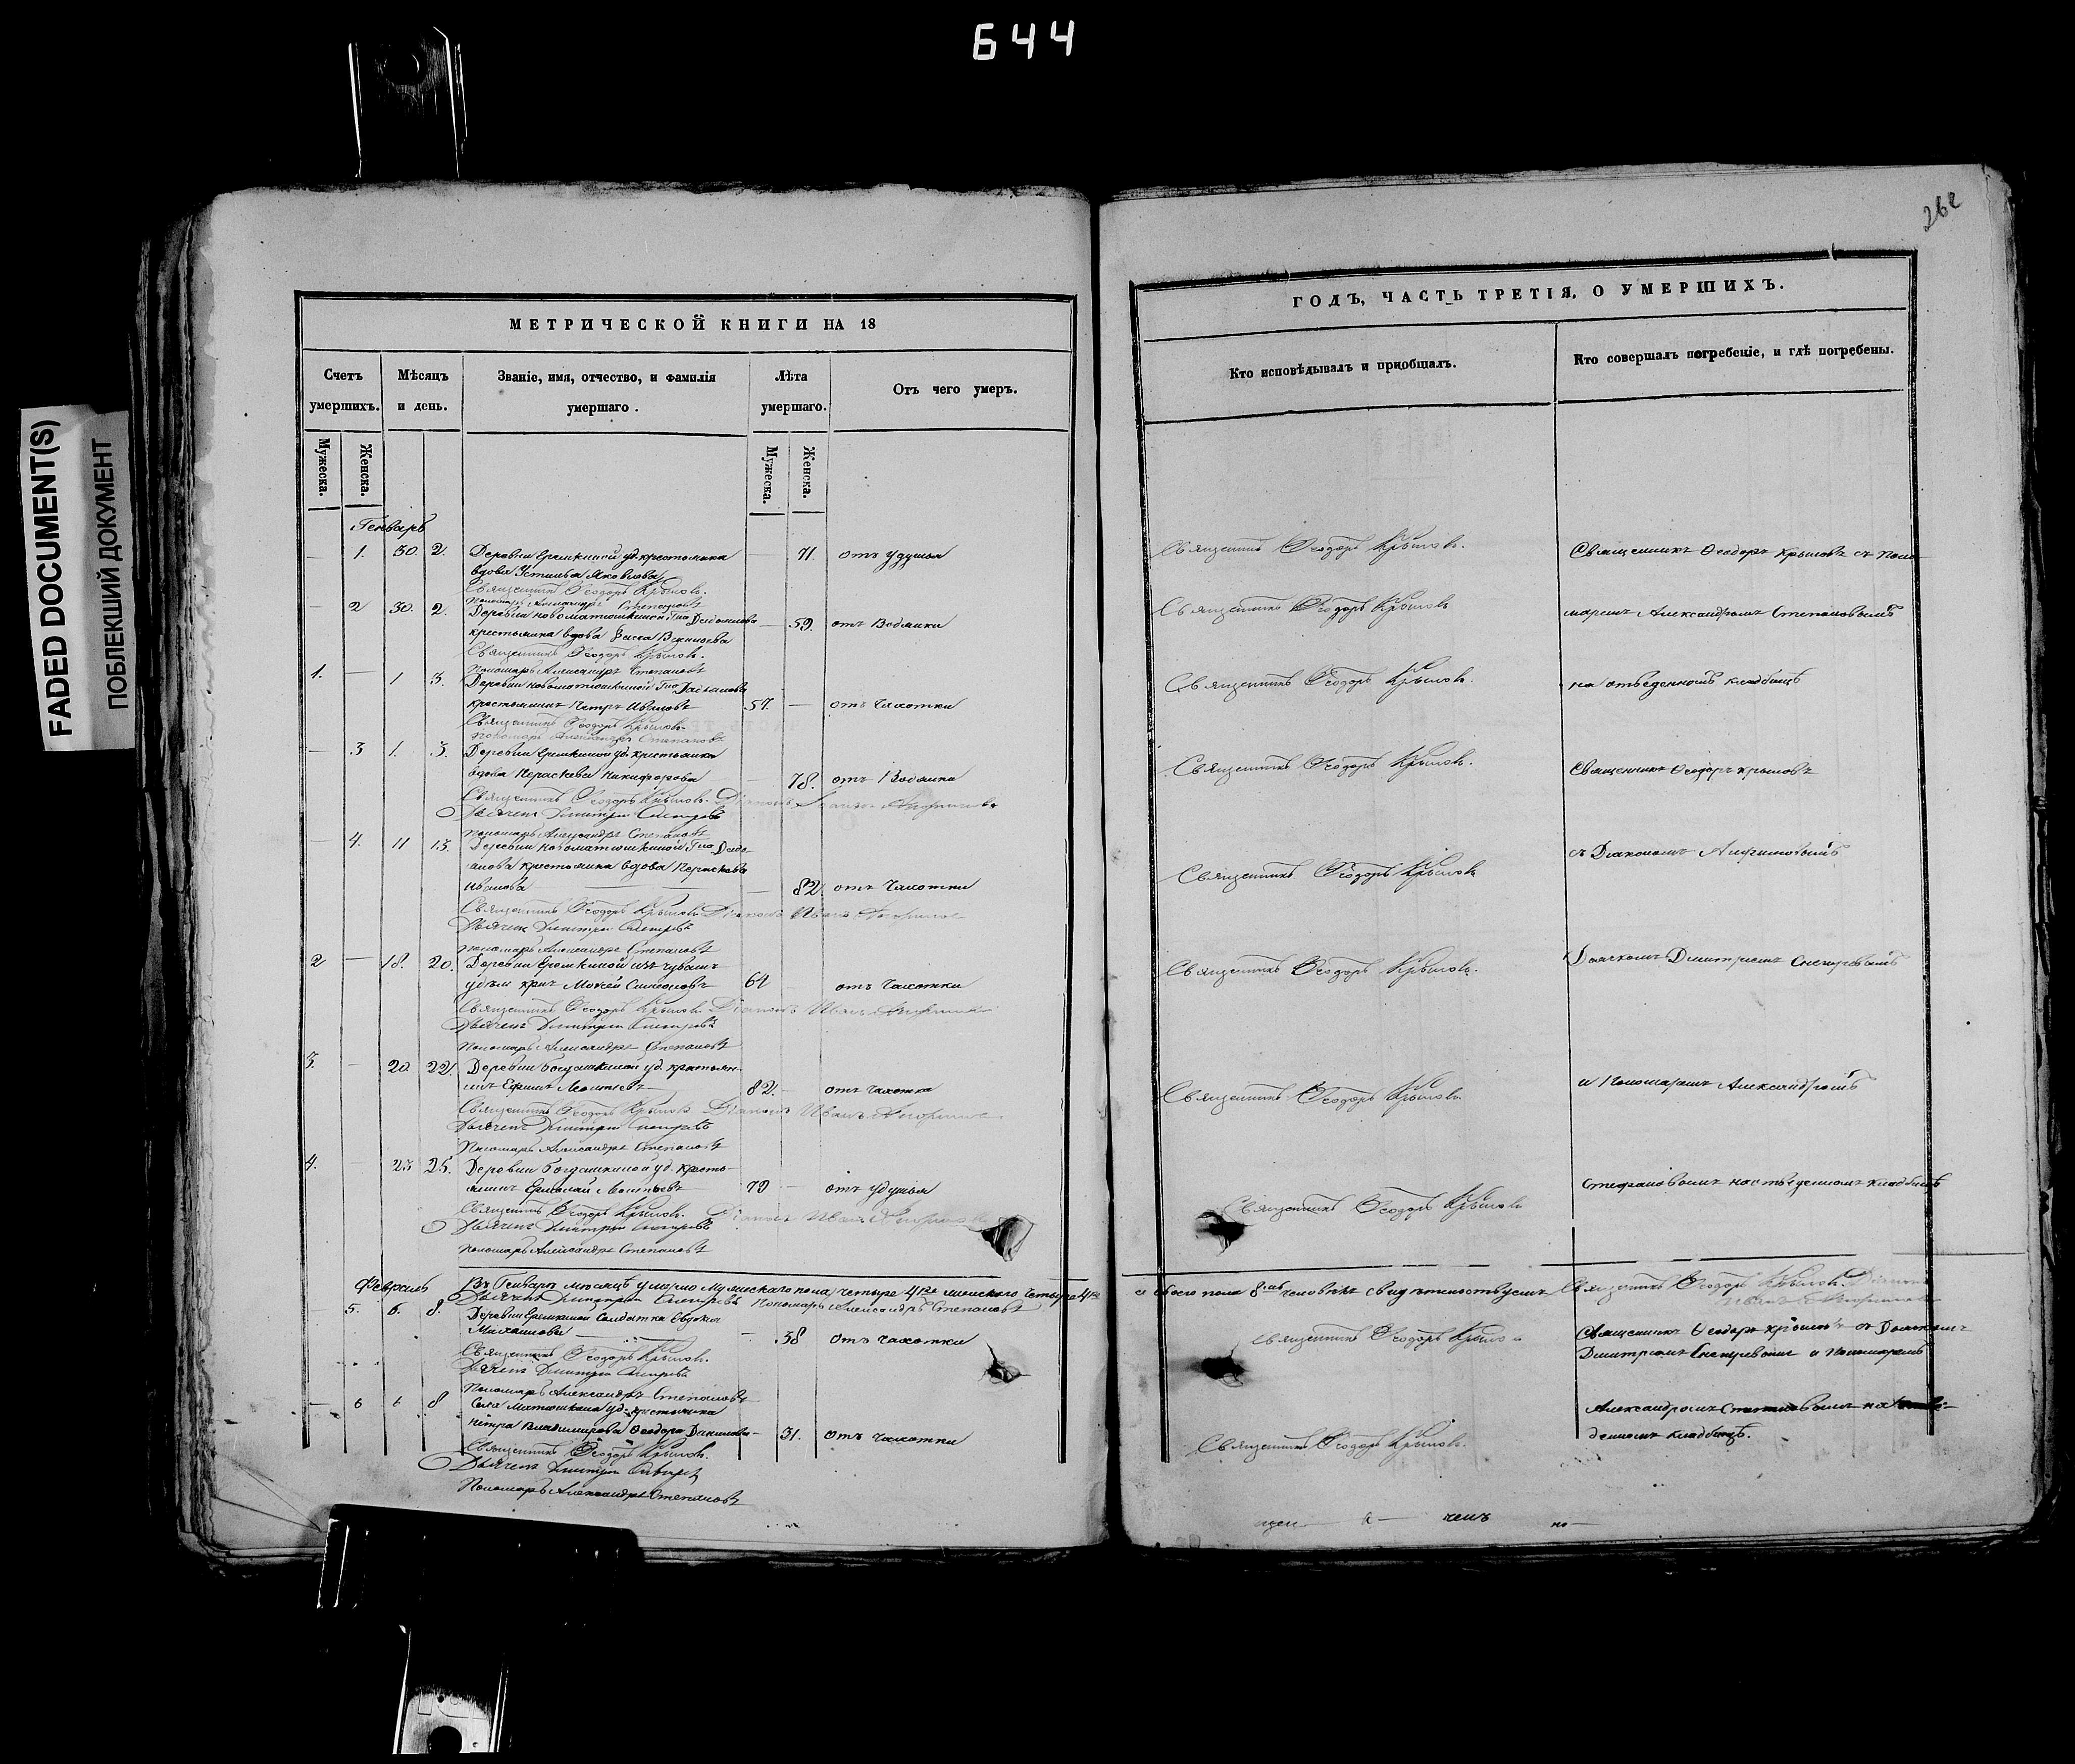 644
262
FADED DOCUMENT(S)
ПОБЛЕКШИЙ ДОКУМЕНТ
МЕТРИЧЕСКОЙ КНИГИ НА 18
Счетъ умершихъ.
Мѣсяцъ и день.
Званіе, имя, отчество, и фамилія умершаго.
Лѣта умершаго.
Отъ чего умеръ.
Мужеска.
Женска.
Мужеска.
Женска.
Генварь
— 1. 30. 2. Деревни Еремкиной уд. крестьянка — 71. отъ удушья
вдова Устинья Яковлева
Священникъ Ѳеодоръ Крыловъ.
Пономарь Александръ Степановъ
— 2 30. 2. Деревни новоматюшкиной — 59. отъ Водянки
крестьянка вдова
Священникъ Ѳеодоръ Крыловъ.
Пономарь Александръ Степановъ
1. — 1 3. Деревни новоматюшкиной
крестьянинъ Петръ Ивановъ 57. — отъ Чахотки
Священникъ Ѳеодоръ Крыловъ
пономарь Александръ Степановъ
— 3 1. 3. Деревни Еремкиной уд. крестьянка
вдова Параскева Никифорова — 78. отъ Водянки
Священникъ Ѳеодоръ Крыловъ. Діаконъ
Дьячекъ Димитрій
Пономарь Александръ Степановъ
— 4. 11 13. Деревни новоматюшкиной
крестьянка вдова
Иванова — 82. отъ Чахотки
Священникъ Ѳеодоръ Крыловъ Діаконъ Иванъ
Дьячекъ Димитрій
пономарь Александръ Степановъ
2 — 18. 20. Деревни Еремкиной изъ чувашъ
удѣл. крес. Моисей Симеоновъ 64 отъ Чахотки
Священникъ Ѳеодоръ Крыловъ Діаконъ Иванъ
Дьячекъ Димитрій
Пономарь Александръ Степановъ
3. — 20 22. Деревни Богдашкиной уд. крестьян-
инъ Ефимъ Леонтьевъ 82. — отъ чахотки
Священникъ Ѳеодоръ Крыловъ Діаконъ Иванъ
Дьячекъ Димитрій
Пономарь Александръ Степановъ
4. — 23 25. Деревни Богдашкиной уд. кресть-
янинъ Ермолай Леонтьевъ 79 — отъ удушья
Священникъ Ѳеодоръ Крыловъ. Діаконъ Иванъ
Дьячекъ Димитрій
Пономарь Александръ Степановъ
Февраль
Въ Генварѣ мѣсяцѣ умерло мужескаго пола четыре 4ре женскаго четыре 4ре
Дьячекъ Димитрій Пономарь Александръ Степановъ
— 5. 6. 8. Деревни Еремкиной Солдатка Евдокія
Михайлова — 38 отъ чахотки
Священникъ Ѳеодоръ Крыловъ.
Дьячекъ Димитрій
Пономарь Александръ Степановъ
— 6 6 8 Села Матюшкина уд. крестьянина
Петра Владимирова — 31. отъ чахотки
Священникъ Ѳеодоръ Крыловъ.
Дьячекъ Димитрій
Пономарь Александръ Степановъ
ГОДЪ, ЧАСТЬ ТРЕТІЯ, О УМЕРШИХЪ.
Кто исповѣдывалъ и пріобщалъ.
Кто совершалъ погребеніе, и гдѣ погребены.
Священникъ Ѳеодоръ Крыловъ. Священникъ Ѳеодоръ Крыловъ съ поно-
Священникъ Ѳеодоръ Крыловъ маремъ Александромъ Степановымъ
Священникъ Ѳеодоръ Крыловъ. на отведенномъ кладбищѣ
Священникъ Ѳеодоръ Крыловъ. Священникъ Ѳеодоръ Крыловъ
Священникъ Ѳеодоръ Крыловъ съ Діакономъ
Священникъ Ѳеодоръ Крыловъ. Дьячкомъ Димитріемъ
Священникъ Ѳеодоръ Крыловъ и Пономаремъ Александромъ
Священникъ Ѳеодоръ Крыловъ Стефановымъ на отведенномъ кладбищѣ
а обоего пола 8мь человѣкъ свидѣтельствуемъ Священникъ Ѳеодоръ Крыловъ. Діаконъ
Иванъ
Священникъ Ѳеодоръ Крыловъ Священникъ Ѳеодоръ Крыловъ съ Дьячкомъ
Димитріемъ и Пономаремъ
Александромъ Степановымъ на отве-
Священникъ Ѳеодоръ Крыловъ. денномъ кладбищѣ.